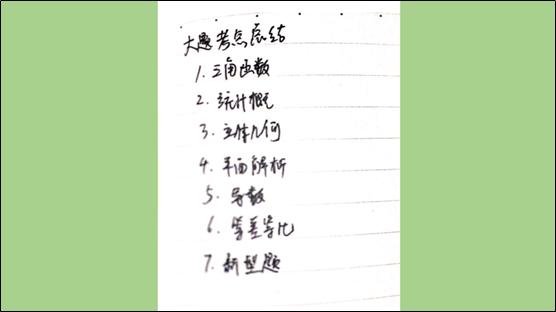 大题考点总结
1. 三角函数
2. 统计概
3. 立体几何
4. 平面解析
5. 导数
6. 等差等比
7. 新型题